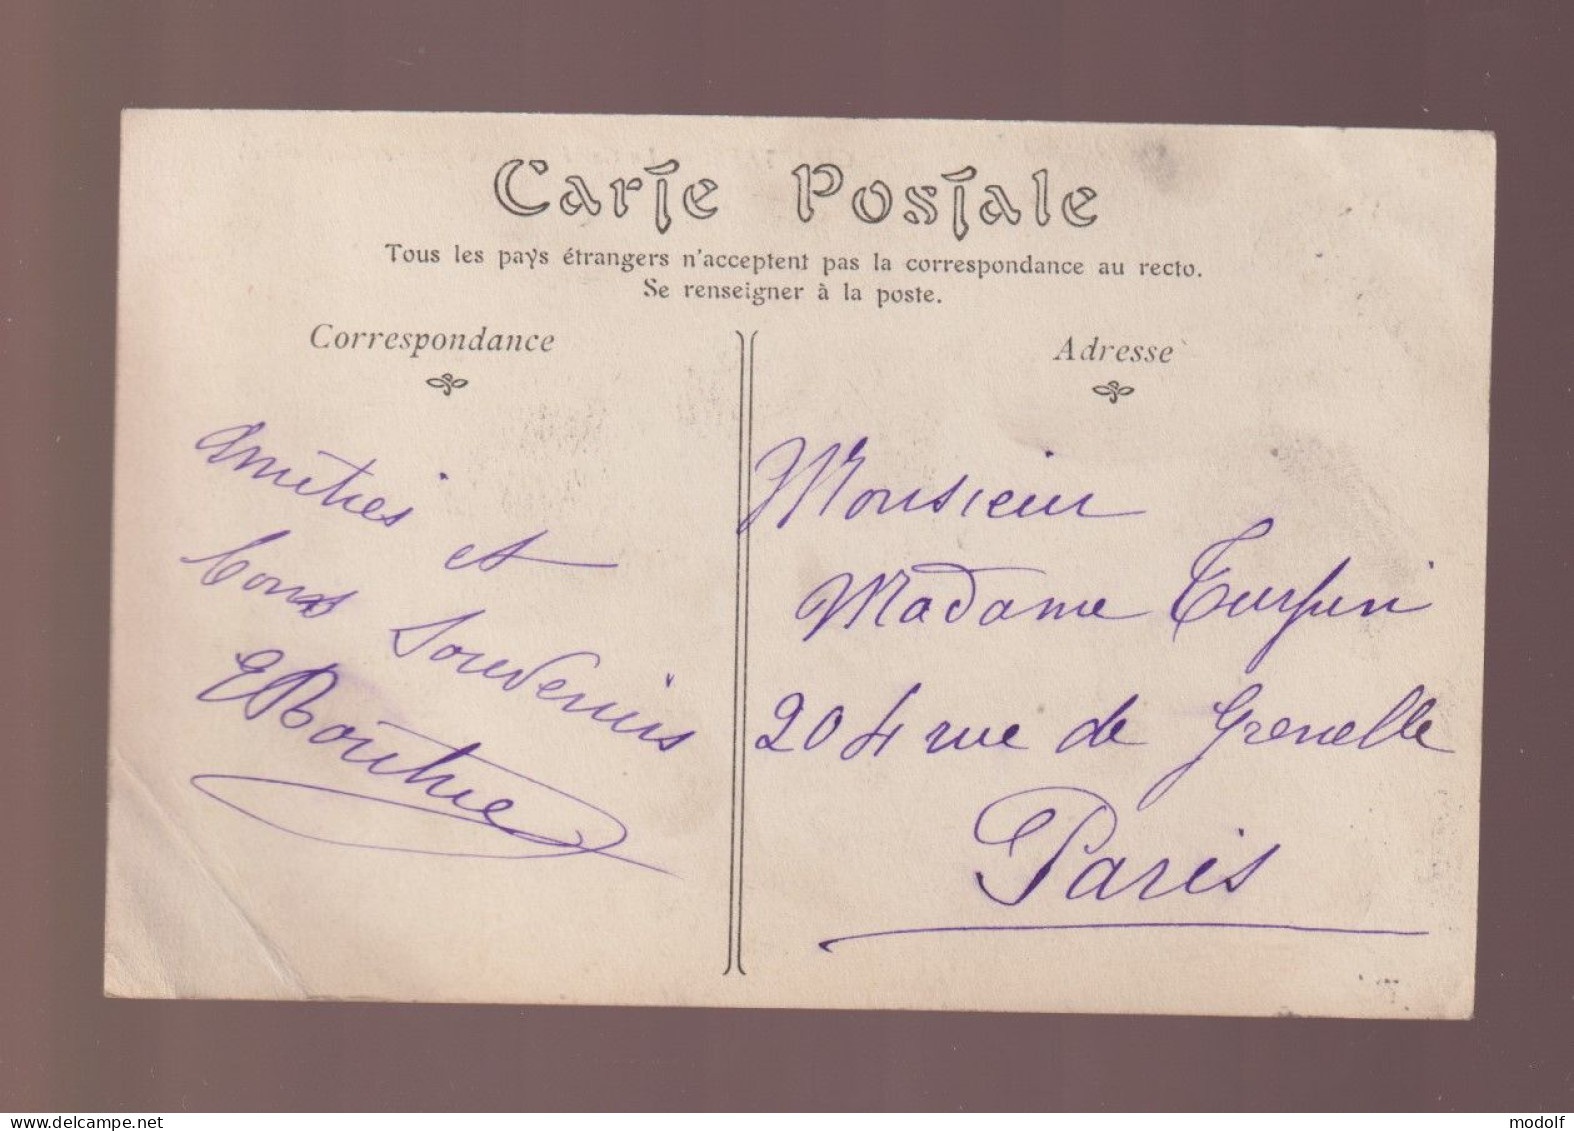 Carte Postale
Tous les pays étrangers n'acceptent pas la correspondance au recto.
Se renseigner à la poste.
Correspondance
Amitiés et
bons Souvenirs
Adresse
Monsieur
Madame Turpin
204 rue de Grenelle
Paris
www.delcampe.net
modolf